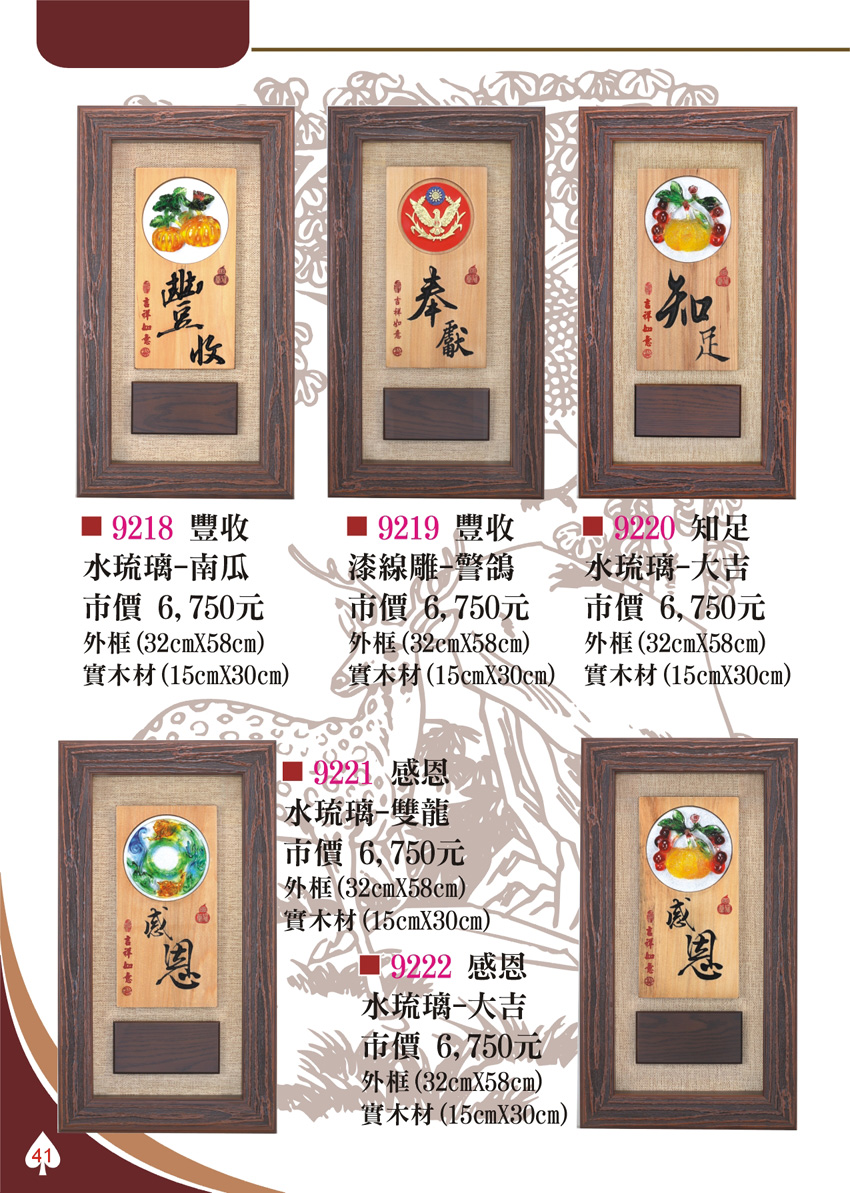 豐收
吉祥如意
奉獻
吉祥如意
知足
吉祥如意
■ 9218 豐收
水琉璃-南瓜
市價 6,750元
外框(32cmX58cm)
實木材(15cmX30cm)
■ 9219 豐收
漆線雕-警鴿
市價 6,750元
外框(32cmX58cm)
實木材(15cmX30cm)
■ 9220 知足
水琉璃-大吉
市價 6,750元
外框(32cmX58cm)
實木材(15cmX30cm)
感恩
吉祥如意
■ 9221 感恩
水琉璃-雙龍
市價 6,750元
外框(32cmX58cm)
實木材(15cmX30cm)
感恩
吉祥如意
■ 9222 感恩
水琉璃-大吉
市價 6,750元
外框(32cmX58cm)
實木材(15cmX30cm)
41